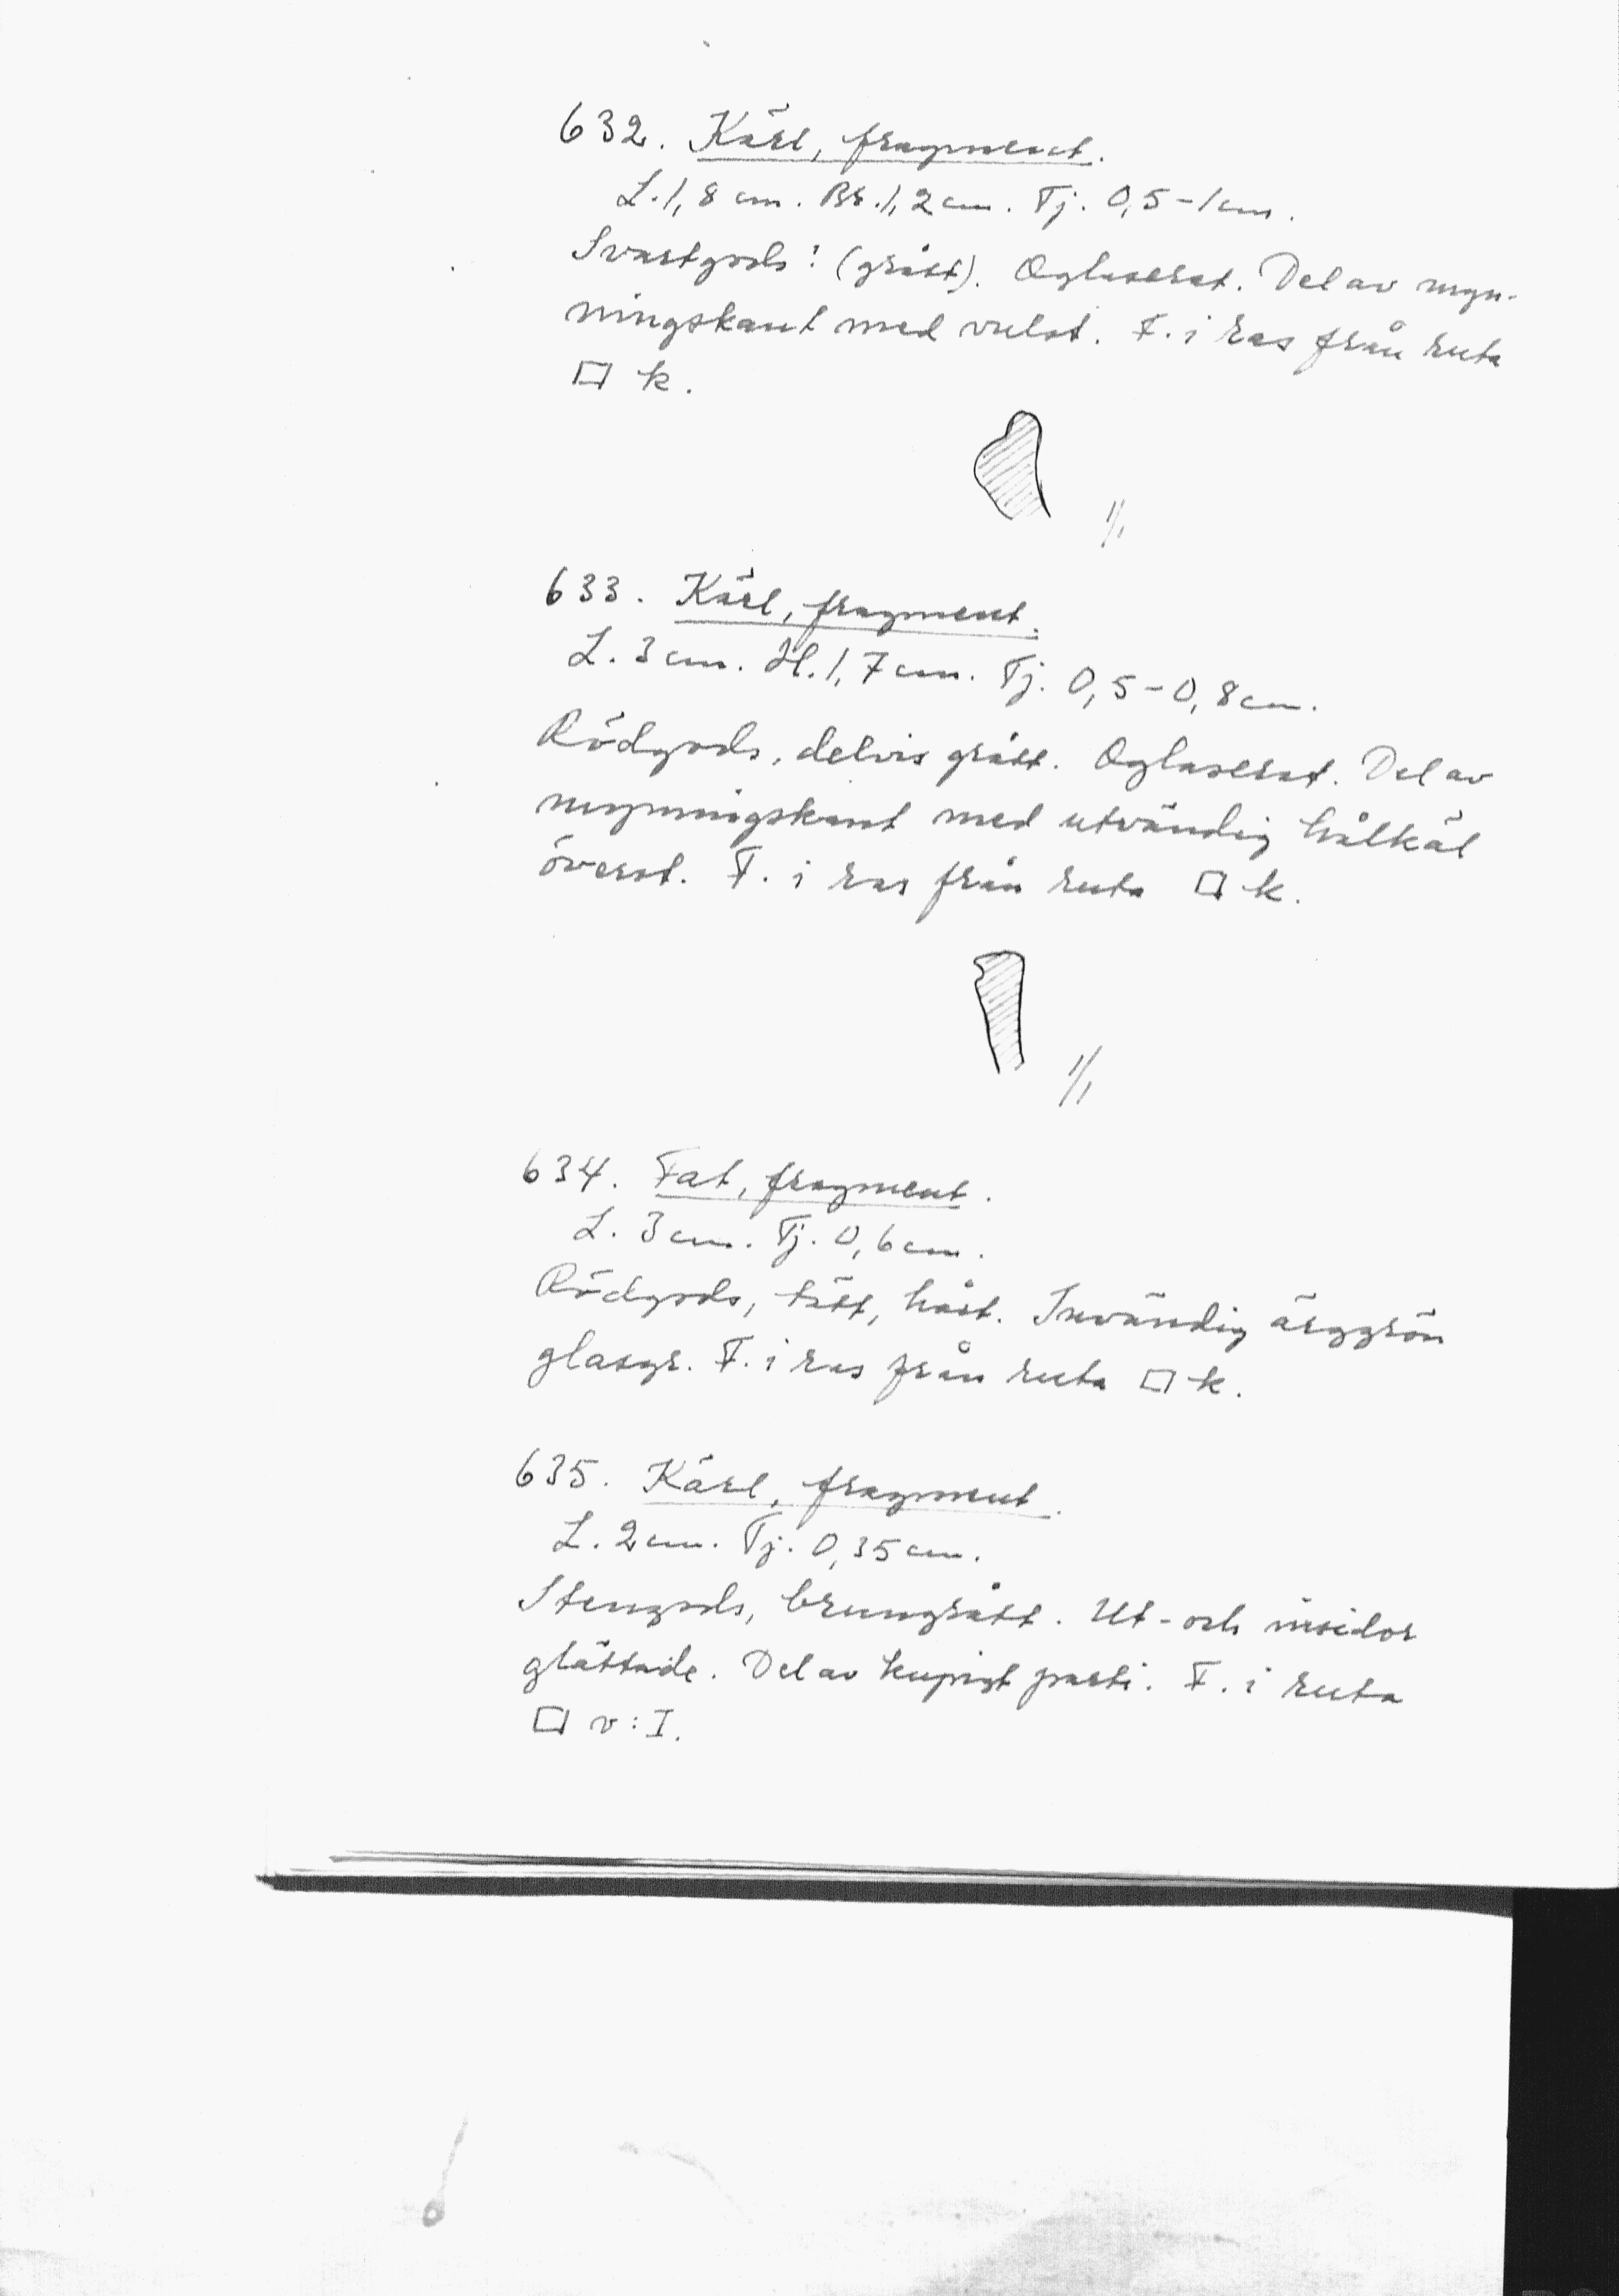 632. Kärl, fragment.
L. 1,8 cm. Br. 1,2 cm. Tj. 0,5-1 cm.
Svartgods? (grått). Oglaserat. Del av myn-
ningskant med vulst. F. i ras från ruta
□ k.
1/1
633. Kärl, fragment.
L. 3 cm. H. 1,7 cm. Tj. 0,5-0,8 cm.
Rödgods, delvis grått. Oglaserat. Del av
mynningskant med utvändig hålkäl
överst. F. i ras från ruta □ k.
1/1
634. Fat, fragment.
L. 3 cm. Tj. 0,6 cm.
Rödgods, tätt, hårt. Invändig ärggrön
glasyr. F. i ras från ruta □ k.
635. Kärl, fragment.
L. 2 cm. Tj. 0,35 cm.
Stengods, brungrått. Ut- och insidor
glättade. Del av kupigt parti. F. i ruta
□ v:I.